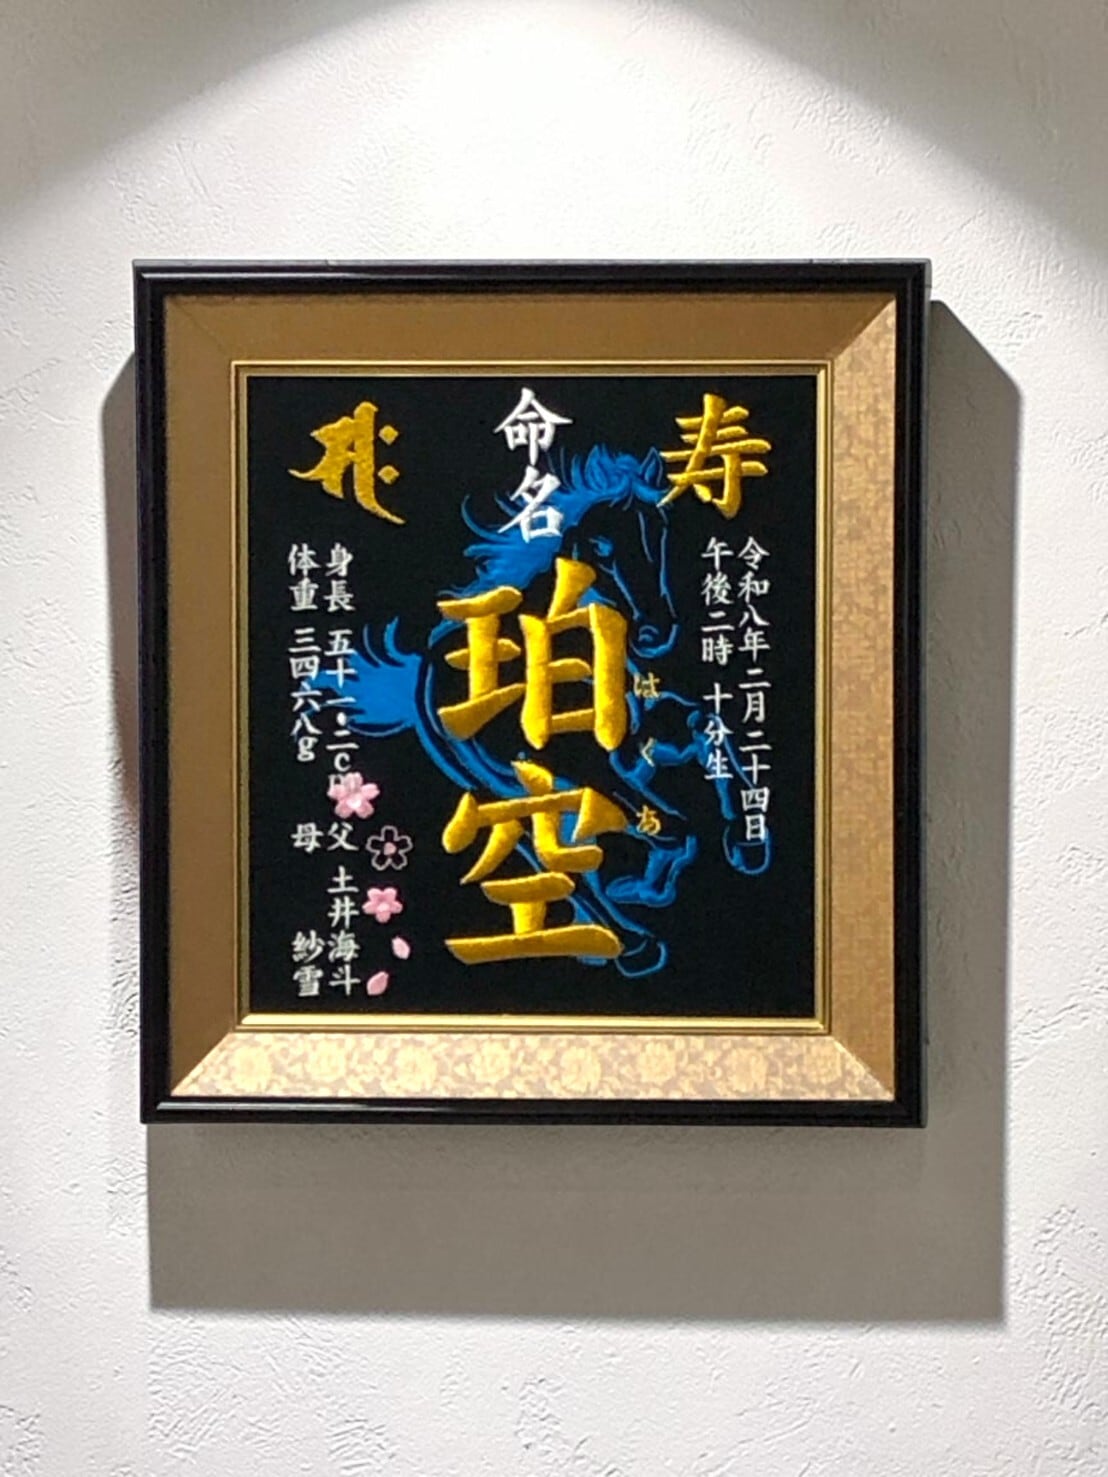 寿
令和八年二月二十四日
午後二時 十分生
命名
珀空
はくあ
𑖀𑖾
身長 五十一・二cm
体重 三四六八g
父 土井海斗
母 紗雪